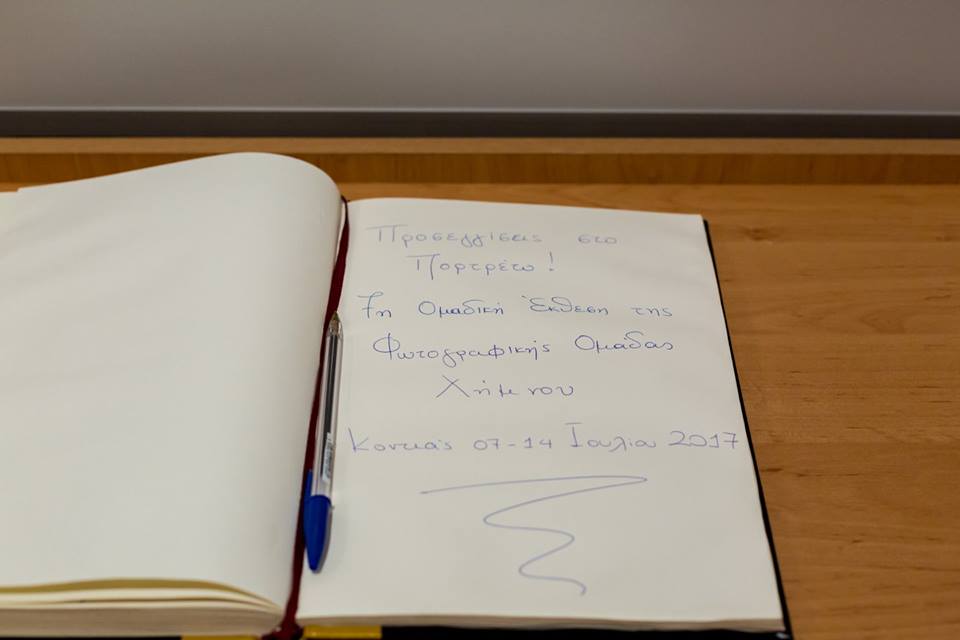 Προσεγγίσεις στο
Πορτρέτο!
7η Ομαδική Έκθεση της
Φωτογραφικής Ομάδας
07-14 Ιουλίου 2017